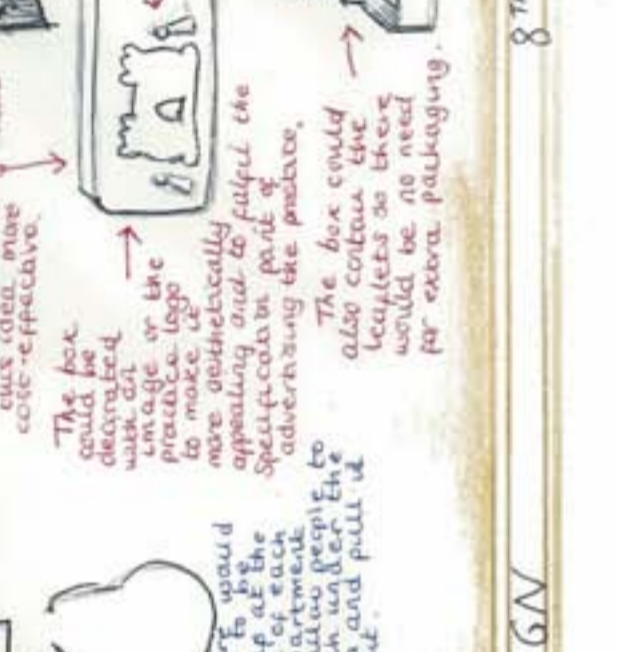 this idea more
cost-effective.
The box
could be
decorated
with an
image or the
practice logo
to make it
more aesthetically
appealing and to fulfil the
Specification point of
advertising the practice.
The box could
also contain the
leaflets so there
would be no need
for extra packaging.
would
to be
at the
of each
people to
under the
and pull it
8TH
GN